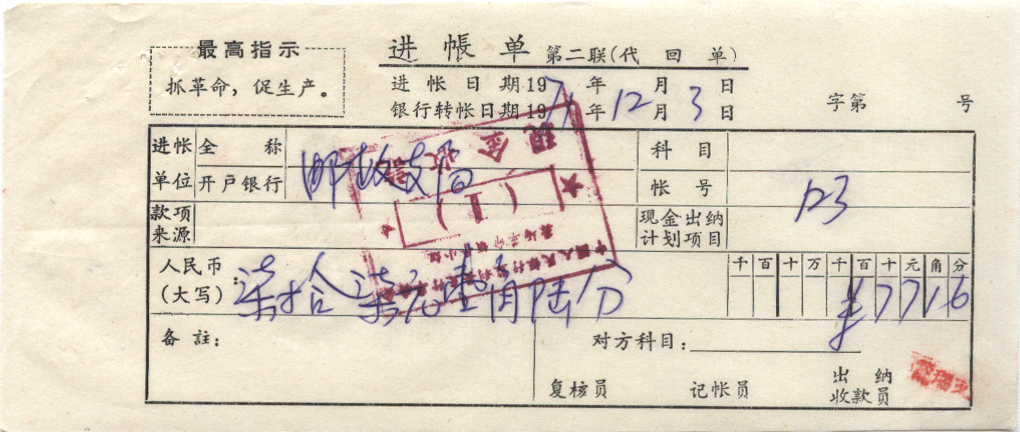 最高指示
抓革命，促生产。
进帐单 第二联(代回单)
进帐日期197 年 月 日
银行转帐日期1971年12月3日
字第 号
进帐单位 全称
开户银行
邮政支局
科目
帐号
123
款项来源
现金出纳计划项目
人民币(大写)：
柒拾柒元壹角陆分
千百十万千百十元角分
¥7716
备註：
对方科目：
复核员 记帐员 出纳收款员
现金收讫
(1)
中国人民银行